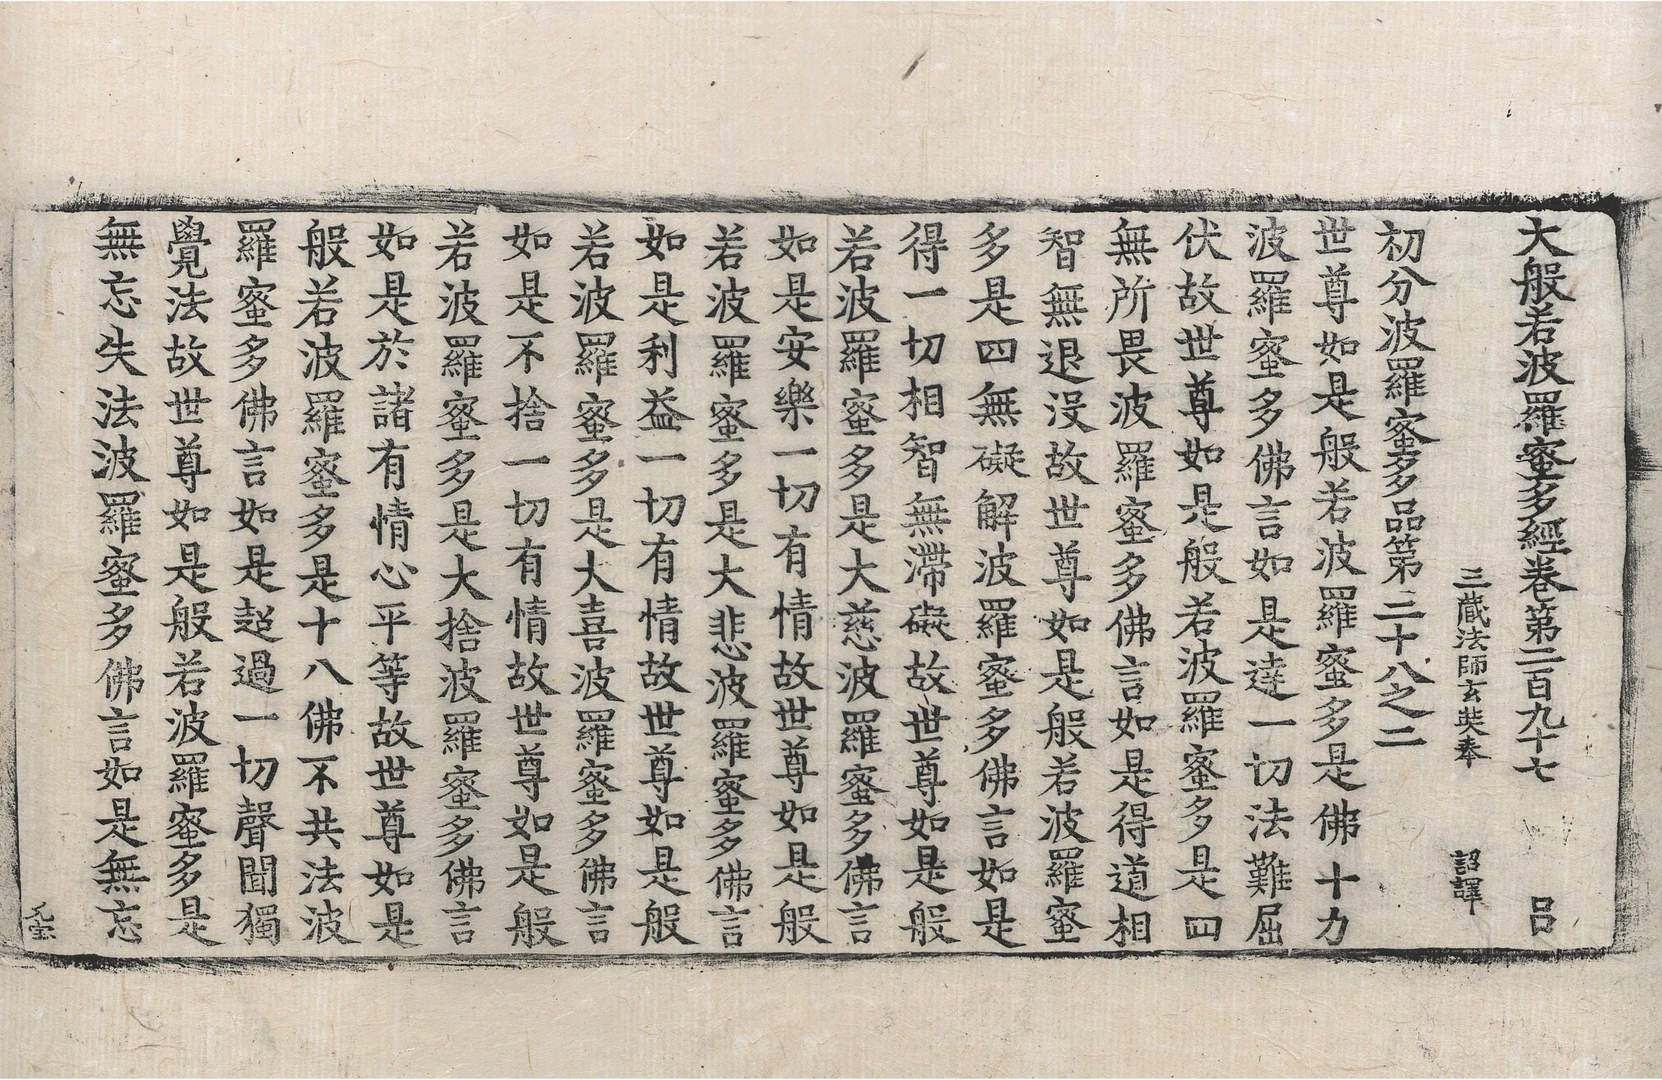 大般若波羅蜜多經卷第二百九十七 呂
三藏法師玄奘奉 詔譯
初分波羅蜜多品第三十八之二
世尊如是般若波羅蜜多是佛十力
波羅蜜多佛言如是達一切法難屈
伏故世尊如是般若波羅蜜多是四
無所畏波羅蜜多佛言如是得道相
智無退沒故世尊如是般若波羅蜜
多是四無礙解波羅蜜多佛言如是
得一切相智無滯礙故世尊如是般
若波羅蜜多是大慈波羅蜜多佛言
如是安樂一切有情故世尊如是般
若波羅蜜多是大悲波羅蜜多佛言
如是利益一切有情故世尊如是般
若波羅蜜多是大喜波羅蜜多佛言
如是不捨一切有情故世尊如是般
若波羅蜜多是大捨波羅蜜多佛言
如是於諸有情心平等故世尊如是
般若波羅蜜多是十八佛不共法波
羅蜜多佛言如是超過一切聲聞獨
覺法故世尊如是般若波羅蜜多是
無忘失法波羅蜜多佛言如是無忘